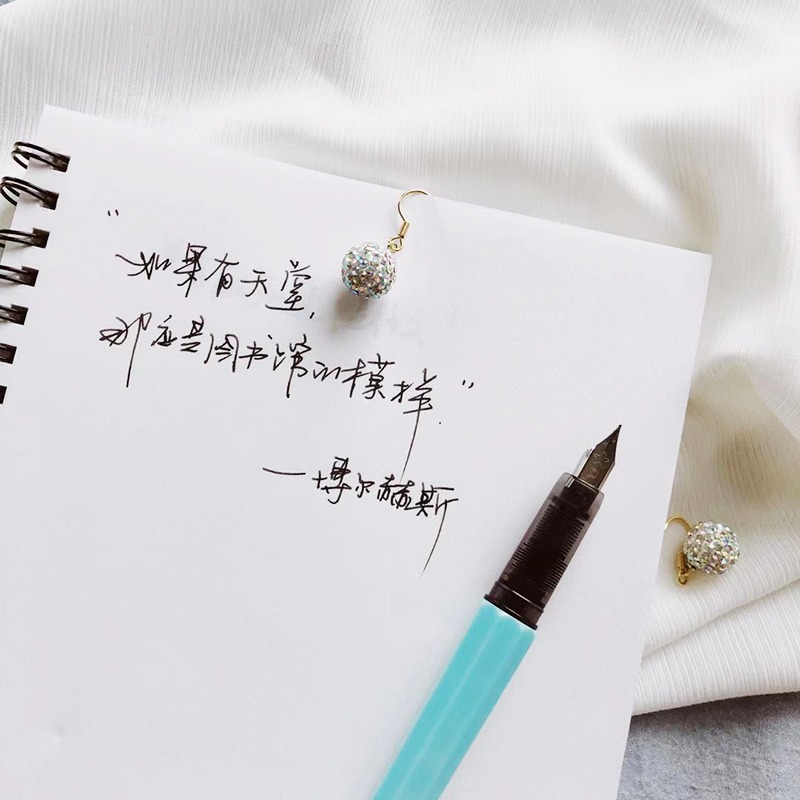 "如果有天堂,
那应是图书馆的模样."
——博尔赫斯